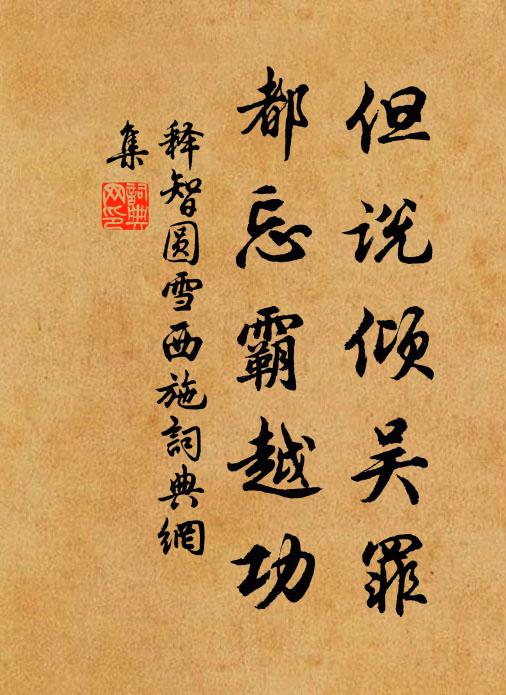 但说倾吴罪
都忘霸越功
释智圆雪西施詞典網
集
詞典
网印